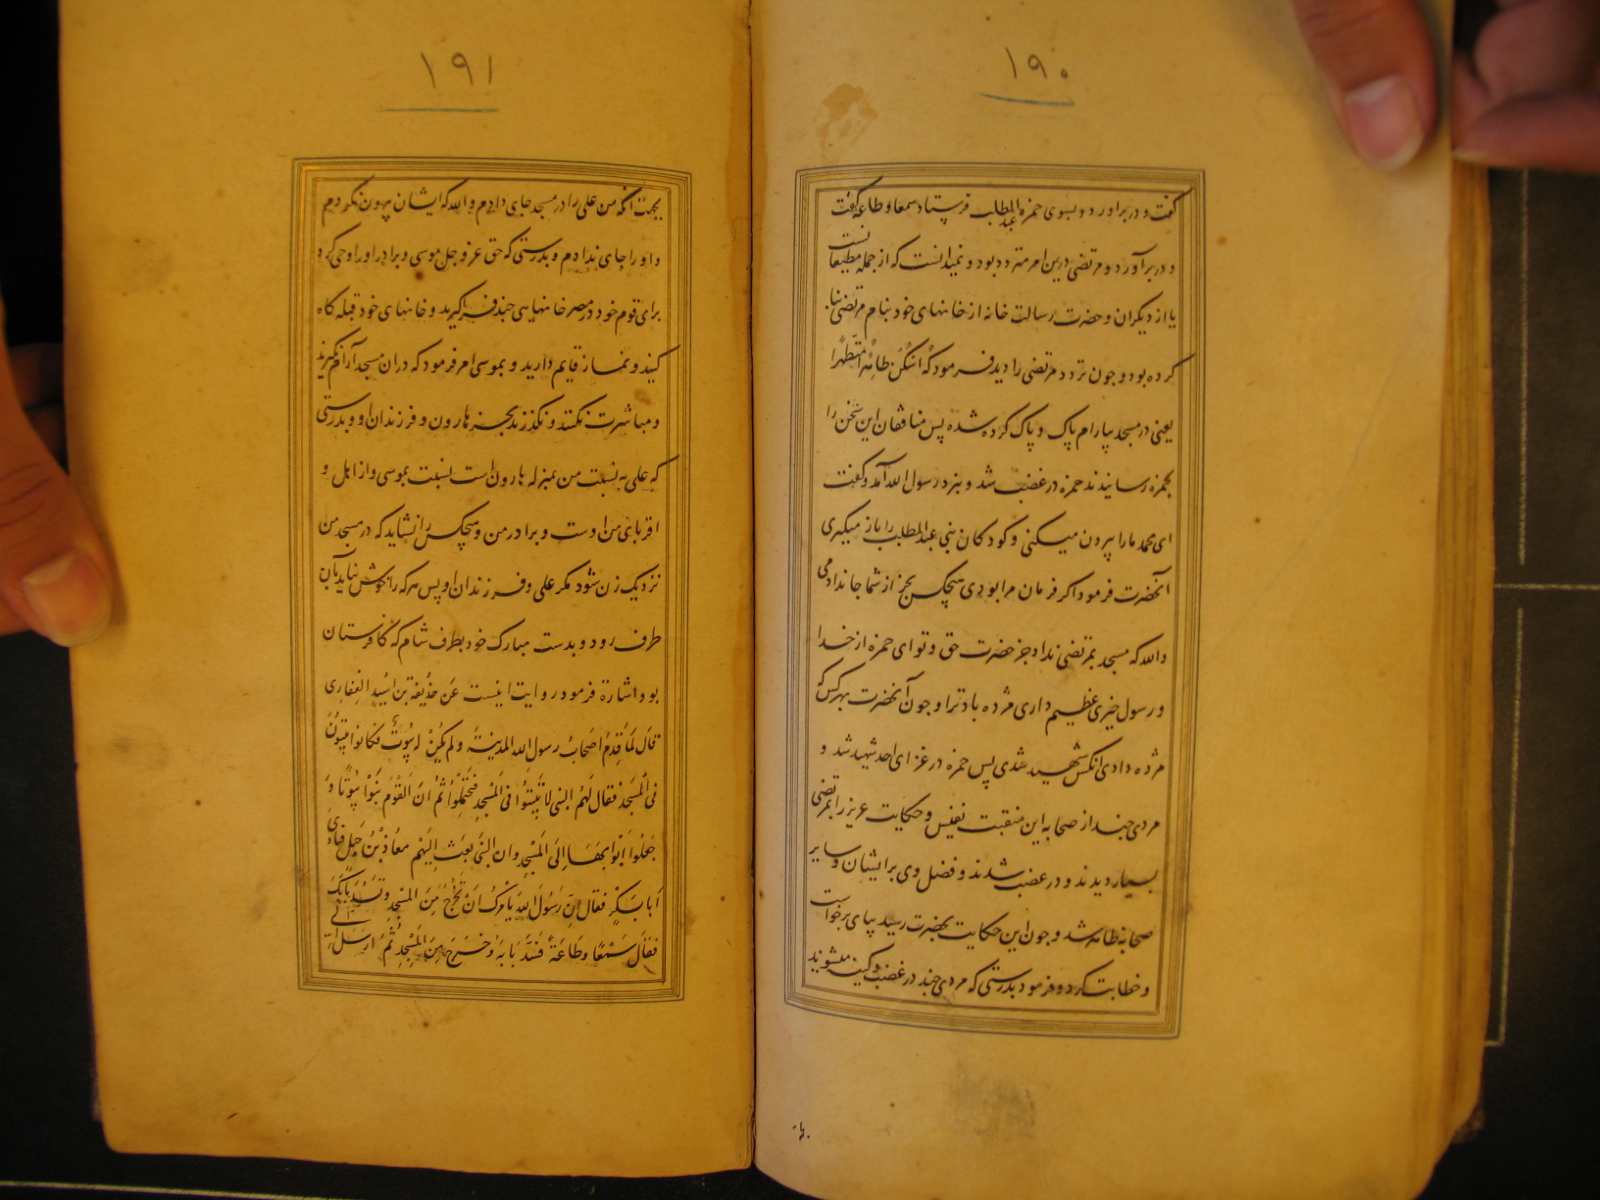 ۱۹۰
گفت و در براورد و بسوی حمزه عبدالمطلب فرستاد سمعا و طاعه گفت
و در برآورد و مرتضی درین امر متردد بود و نمیدانست که از جمله مطیعانست
یا از دیگران و حضرت رسالت خانه از خانهای خود بنام مرتضی بنا
کرده بود و چون تردد مرتضی را دید فرمود که اُسْکُنْ طاهرا مُتطهّرا
یعنی در مسجد بیارام پاک و پاک کرده شده پس منافقان این سخن را
بحمزه رسانیدند حمزه در غضب شد و بنزد رسول الله آمد و گفت
ای محمد مارا بیرون میکنی و کودکان بنی عبدالمطلب را باز میگیری
آنحضرت فرمود اگر فرمان مرا بودی هیچکس بجز از شما جا ندادمی
والله که مسجد بمرتضی نداد جز حضرت حق و تو ای حمزه از خدا
و رسول خیری عظیم داری مژده باد ترا و چون آنحضرت بهرکس که
مژده دادی آنکس شهید شدی پس حمزه در غزای احد شهید شد و
مردی چند از صحابه این منقبت نفیس و حکایت عزیز را بمرتضی
بسیار دیدند و در غضب شدند و فضل وی بر ایشان و سایر
صحابه ظاهر شد و چون این حکایت بحضرت رسید بپای برخواست
و خطابت کرد و فرمود بدرستی که مردی چند در غضب و کینه میشوند
۱۹۱
بجهت آنکه من علی را در مسجد جای دادم والله که ایشان بیرون نکردم
و او را جای ندادم و بدرستی که حق عز و جل موسی و برادر او را وحی کرد
برای قوم خود در مصر خانهایی چند فراگیرید و خانهای خود قبله گاه
کنید و نماز قایم دارید و بموسی امر فرمود که دران مسجد آرام نگیرند
و مباشرت نکنند و نگذرند بجز هارون و فرزندان او و بدرستی
که علی به نسبت من بمنزله هارونست بنسبت بموسی و از اهل و
اقربای من اوست و برادر من و هیچکس را نشاید که در مسجد من
نزدیک زن شود مگر علی و فرزندان او پس هرکه را خوش نیاید بآن
طرف رود و بدست مبارک خود بطرف شام که کافرستان
بود اشارة فرمود روایت اینست عَن حُذیفه بن اسید الغفاری
قال لمّا قَدِمَ اصحابُ رسول الله المدینة ولم یکُنْ لهم بیُوتٌ فکانوا یبیتُونَ
فی المَسْجد فقال لهمُ النبی لا تَبیتُوا فی المَسْجد فتحتلِمُوا ثمّ ان القَوْم بَنَوْا بیُوتًا وَ
جَعَلوا ابْوابهَا الِیَ المَسْجد وان النبی بَعَثَ الِیْهم معاذ بْنَ جَبل فنادَی
اَبابَکرٍ فقال اِنّ رَسُولَ الله یَامُرکَ انْ تَخْرُجَ مِنَ المسْجد و تَسُدّ بابَکَ
فقال سَمْعًا وطَاعةً فسَدّ بابهُ وخَرجَ مِنَ المَسْجِد ثُمّ ارسَلَ الی